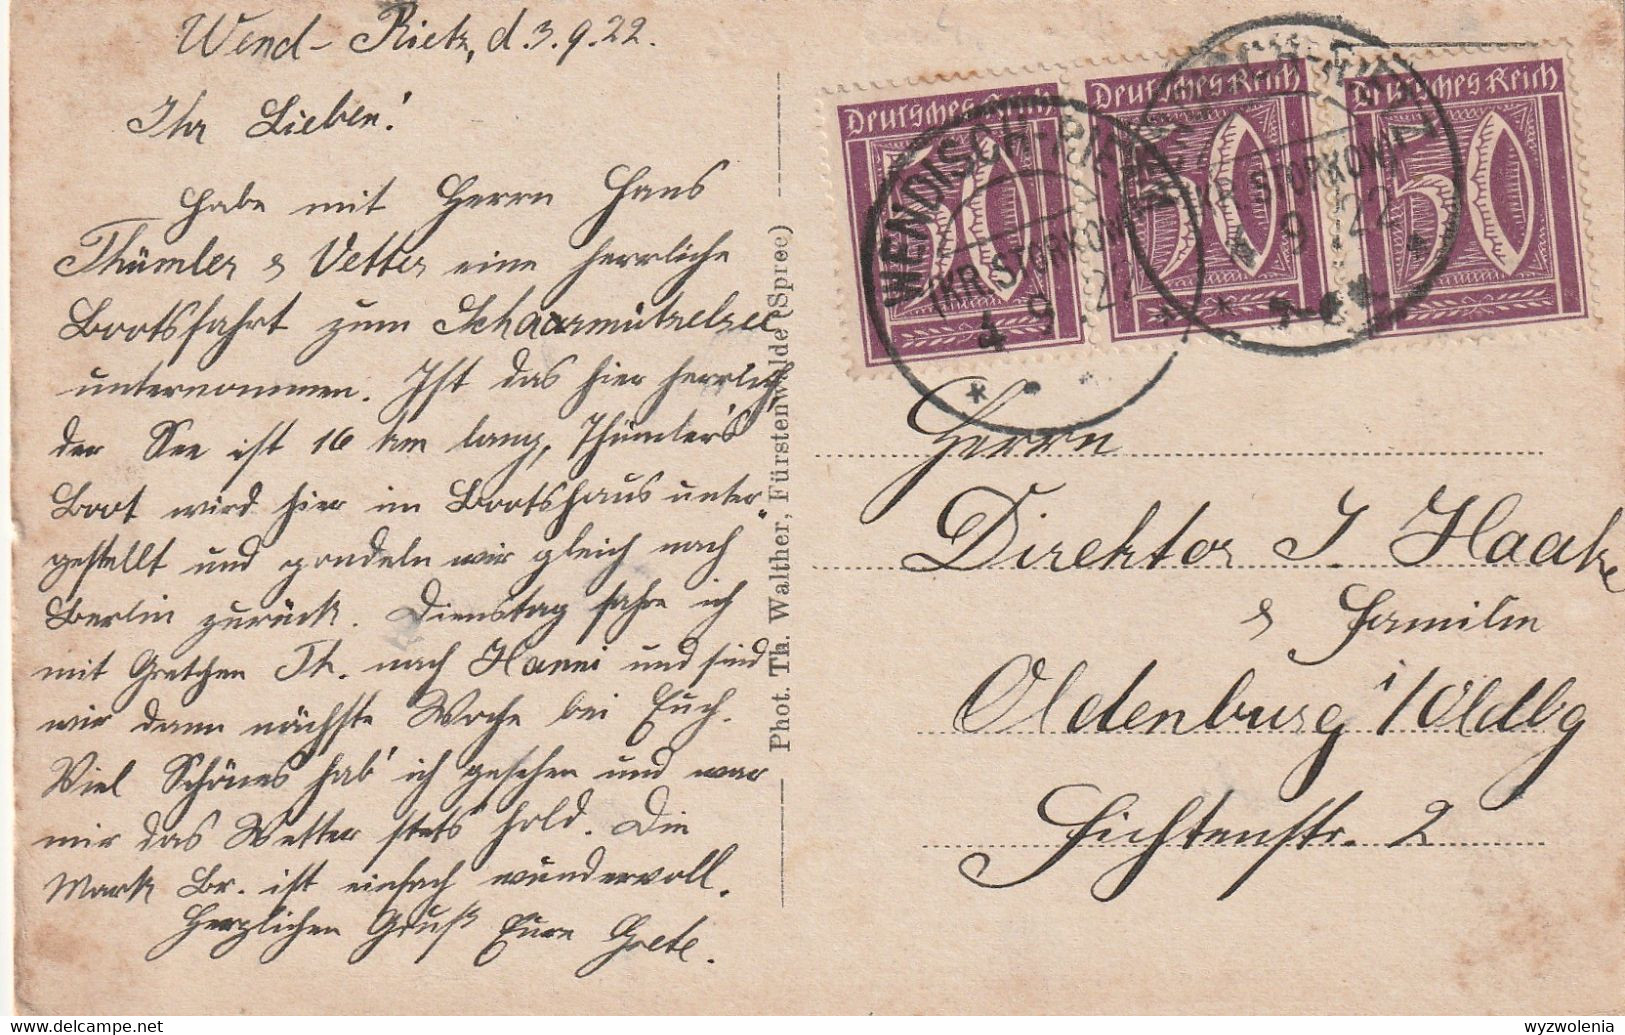 Wend-Rietz, d. 3.9.22.
Ihr Lieben!
Habe mit Herrn Hans
Thümler & Vetter eine herrliche
Bootsfahrt zum Schaarmützelsee
unternommen. Ist das hier herrlich,
der See ist 16 km lang, Thümler's
Boot wird hier im Bootshaus unter-
gestellt und gondeln wir gleich nach
Berlin zurück. Dienstag fahre ich
mit Gretchen Th. nach Hanni und sind
wir dann nächste Woche bei Euch.
Viel Schönes hab' ich gesehen und war
mir das Wetter stets hold. Die
Mark Br. ist einfach wundervoll.
Herzlichen Gruß Eure Grete.
Phot. Th. Walther, Fürstenwalde (Spree)
Deutsches Reich
50
Deutsches Reich
50
Deutsches Reich
50
WENDISCH-RIETZ
(KR. STORKOW)
4 9. 22
(KR. STORKOW)
9. 22
Herrn
Direktor J. Haake
& Familie
Oldenburg i/Oldbg
Fichtenstr. 2
delcampe.net
wyzwolenia